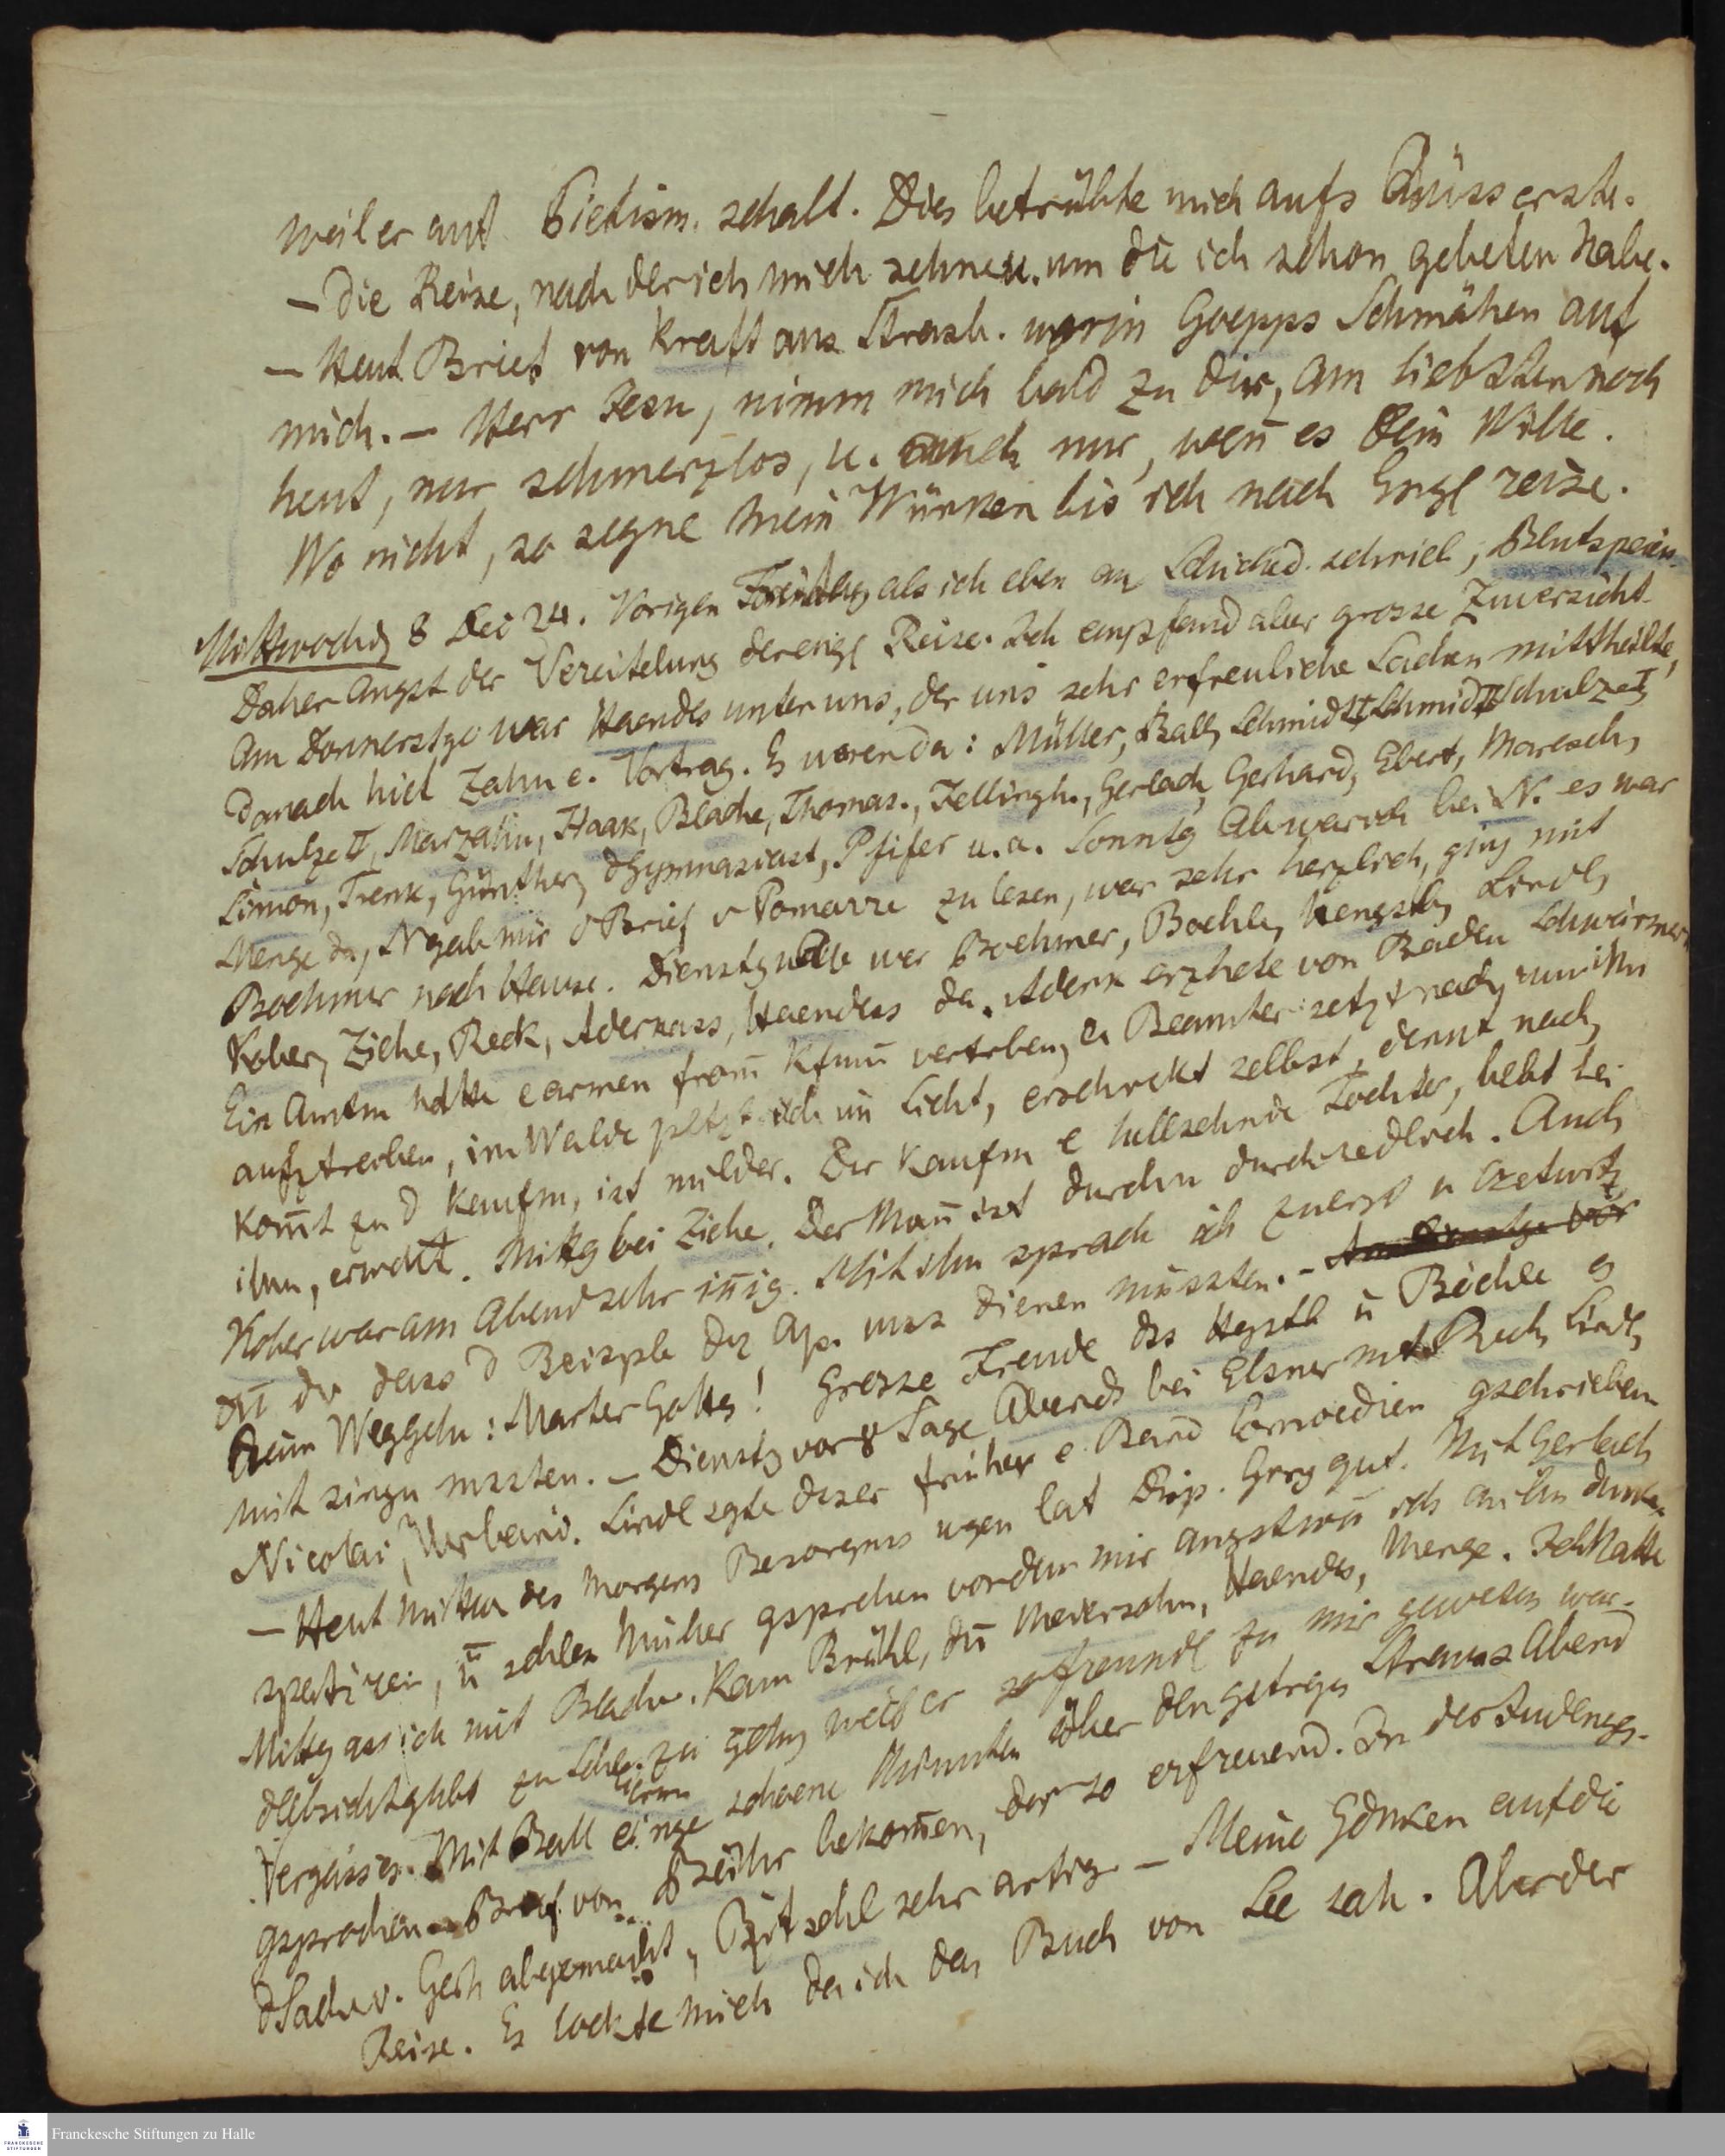 weil er auf Pietism. schalt. Dies betrübte mich aufs Äusserste.
– Die Reise, nach der ich mich sehne u. um die ich schon gebeten habe.
– Heut Brief von Kraft aus Strasb. worin Goepps Schmähen auf
mich. – Herr Jesu, nimm mich bald zu dir, am liebsten noch
heut, nur schmerzlos, u. auch nur, wen̄ es dein Wille.
Wo nicht, so segne mein Würken bis ich nach Engl reise.
Mittwochs 8 Dec 24. Vorigen Freitag als ich eben an schrieb, Blutspeien
Daher Angst der Vereitelung der engl Reise. Ich empfand aber grosse Zuversicht
Am Donnerstge war Haendes unter uns, der uns sehr erfreuliche Sachen mittheilte,
Danach hielt Zahn e. Vortrag. Es waren da: Müller, Ball, Schmidt I, Schmidt II, Schulze I,
Schulze II, Marzahn, Haak, Blache, Thomas., Jellingh., Gerlach, Gerhard, Ebert, Maresch,
Simon, Trenk, Günther, dGymnasiast, Pfifer u. a. Sonntg Ab war ich bei N. es war
Menge da, N gab mir d Brief v Pomarre zu lesen, war sehr herzlich, ging mit
Boehmer nach Hause. Dienstg war Boehmer, Boehle, Hengstb, Lindl,
Kober, Ziehe, Reck, Aderkass, Haendess da. Aderk erzhete von Baden Schwärmer,
Ein Amtm hatte e armen from̄ Kfman̄ vertrben, e Beamter setzt nach, um ihn
aufztreiben, im Walde pltzt sich in Licht, erschrekt selbst, dennt nach,
kom̄t zu d Kaufm, ist milder. Der Kaufm e hellsehnde Tochter, bebt bei
ihm, erwekt. Mittg bei Ziehe. Der Man̄ ist durchu durch redlich. Auch
Kober war am Abend sehr in̄ig. Mit ihm sprach ich zuerst u
dū dv dass d Beisple der Ap. uns dienen müssten. –
Beim Weggehn: Marter Gotts! Grosse Freude dss Hgstb u Böchle es
mit singn mssten. – Dienstg vor 8 Tage Abends bei Elsner mit Rech, Lindl,
Nicolai, Urbani. Lindl sgte dieser früher e. Band Comoedien gschrieben
– Heut Mittw des Morgens Besorgnis wgen lat Disp. Ging gut. Mit Gerlach
spatziren, ū schlen Müller gsprchen vor dem mir angst wen̄ ich an ihn denke.
Mittg ass ich mit Blache. Kam Brühl, dū Meiersohn, Haendes, Menge. Ich hatte
zu Schl. zu gehn weil er so freundl zu mir gewesen war.
Vergassn. Mit Ball einge schoene Minuten über den gstrigen Strauss Abend
gsprochen. Brief von bekom̄en, der so erfreuend. In des Judenges.
dSache v. Gerh abgemacht, Bötschl sehr artig. – Meine Gdnken auf die
Reise. Es lockte mich da ich das Buch von Lee sah. Aber der
Franckesche Stiftungen zu Halle